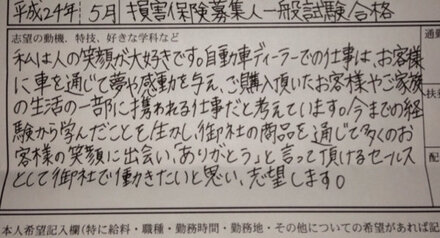 平成24年 5月 損害保険募集人一般試験合格
志望の動機、特技、好きな学科など
私は人の笑顔が大好きです。自動車ディーラーでの仕事は、お客様
に車を通じて夢や感動を与え、ご購入頂いたお客様やご家族
の生活の一部に携われる仕事だと考えています。今までの経
験から学んだことを生かし、御社の商品を通じて多くのお
客様の笑顔に出会い、「ありがとう」と言って頂けるセールス
として御社で働きたいと思い、志望します。
通勤
扶
配
本人希望記入欄(特に給料・職種・勤務時間・勤務地・その他についての希望があれば記